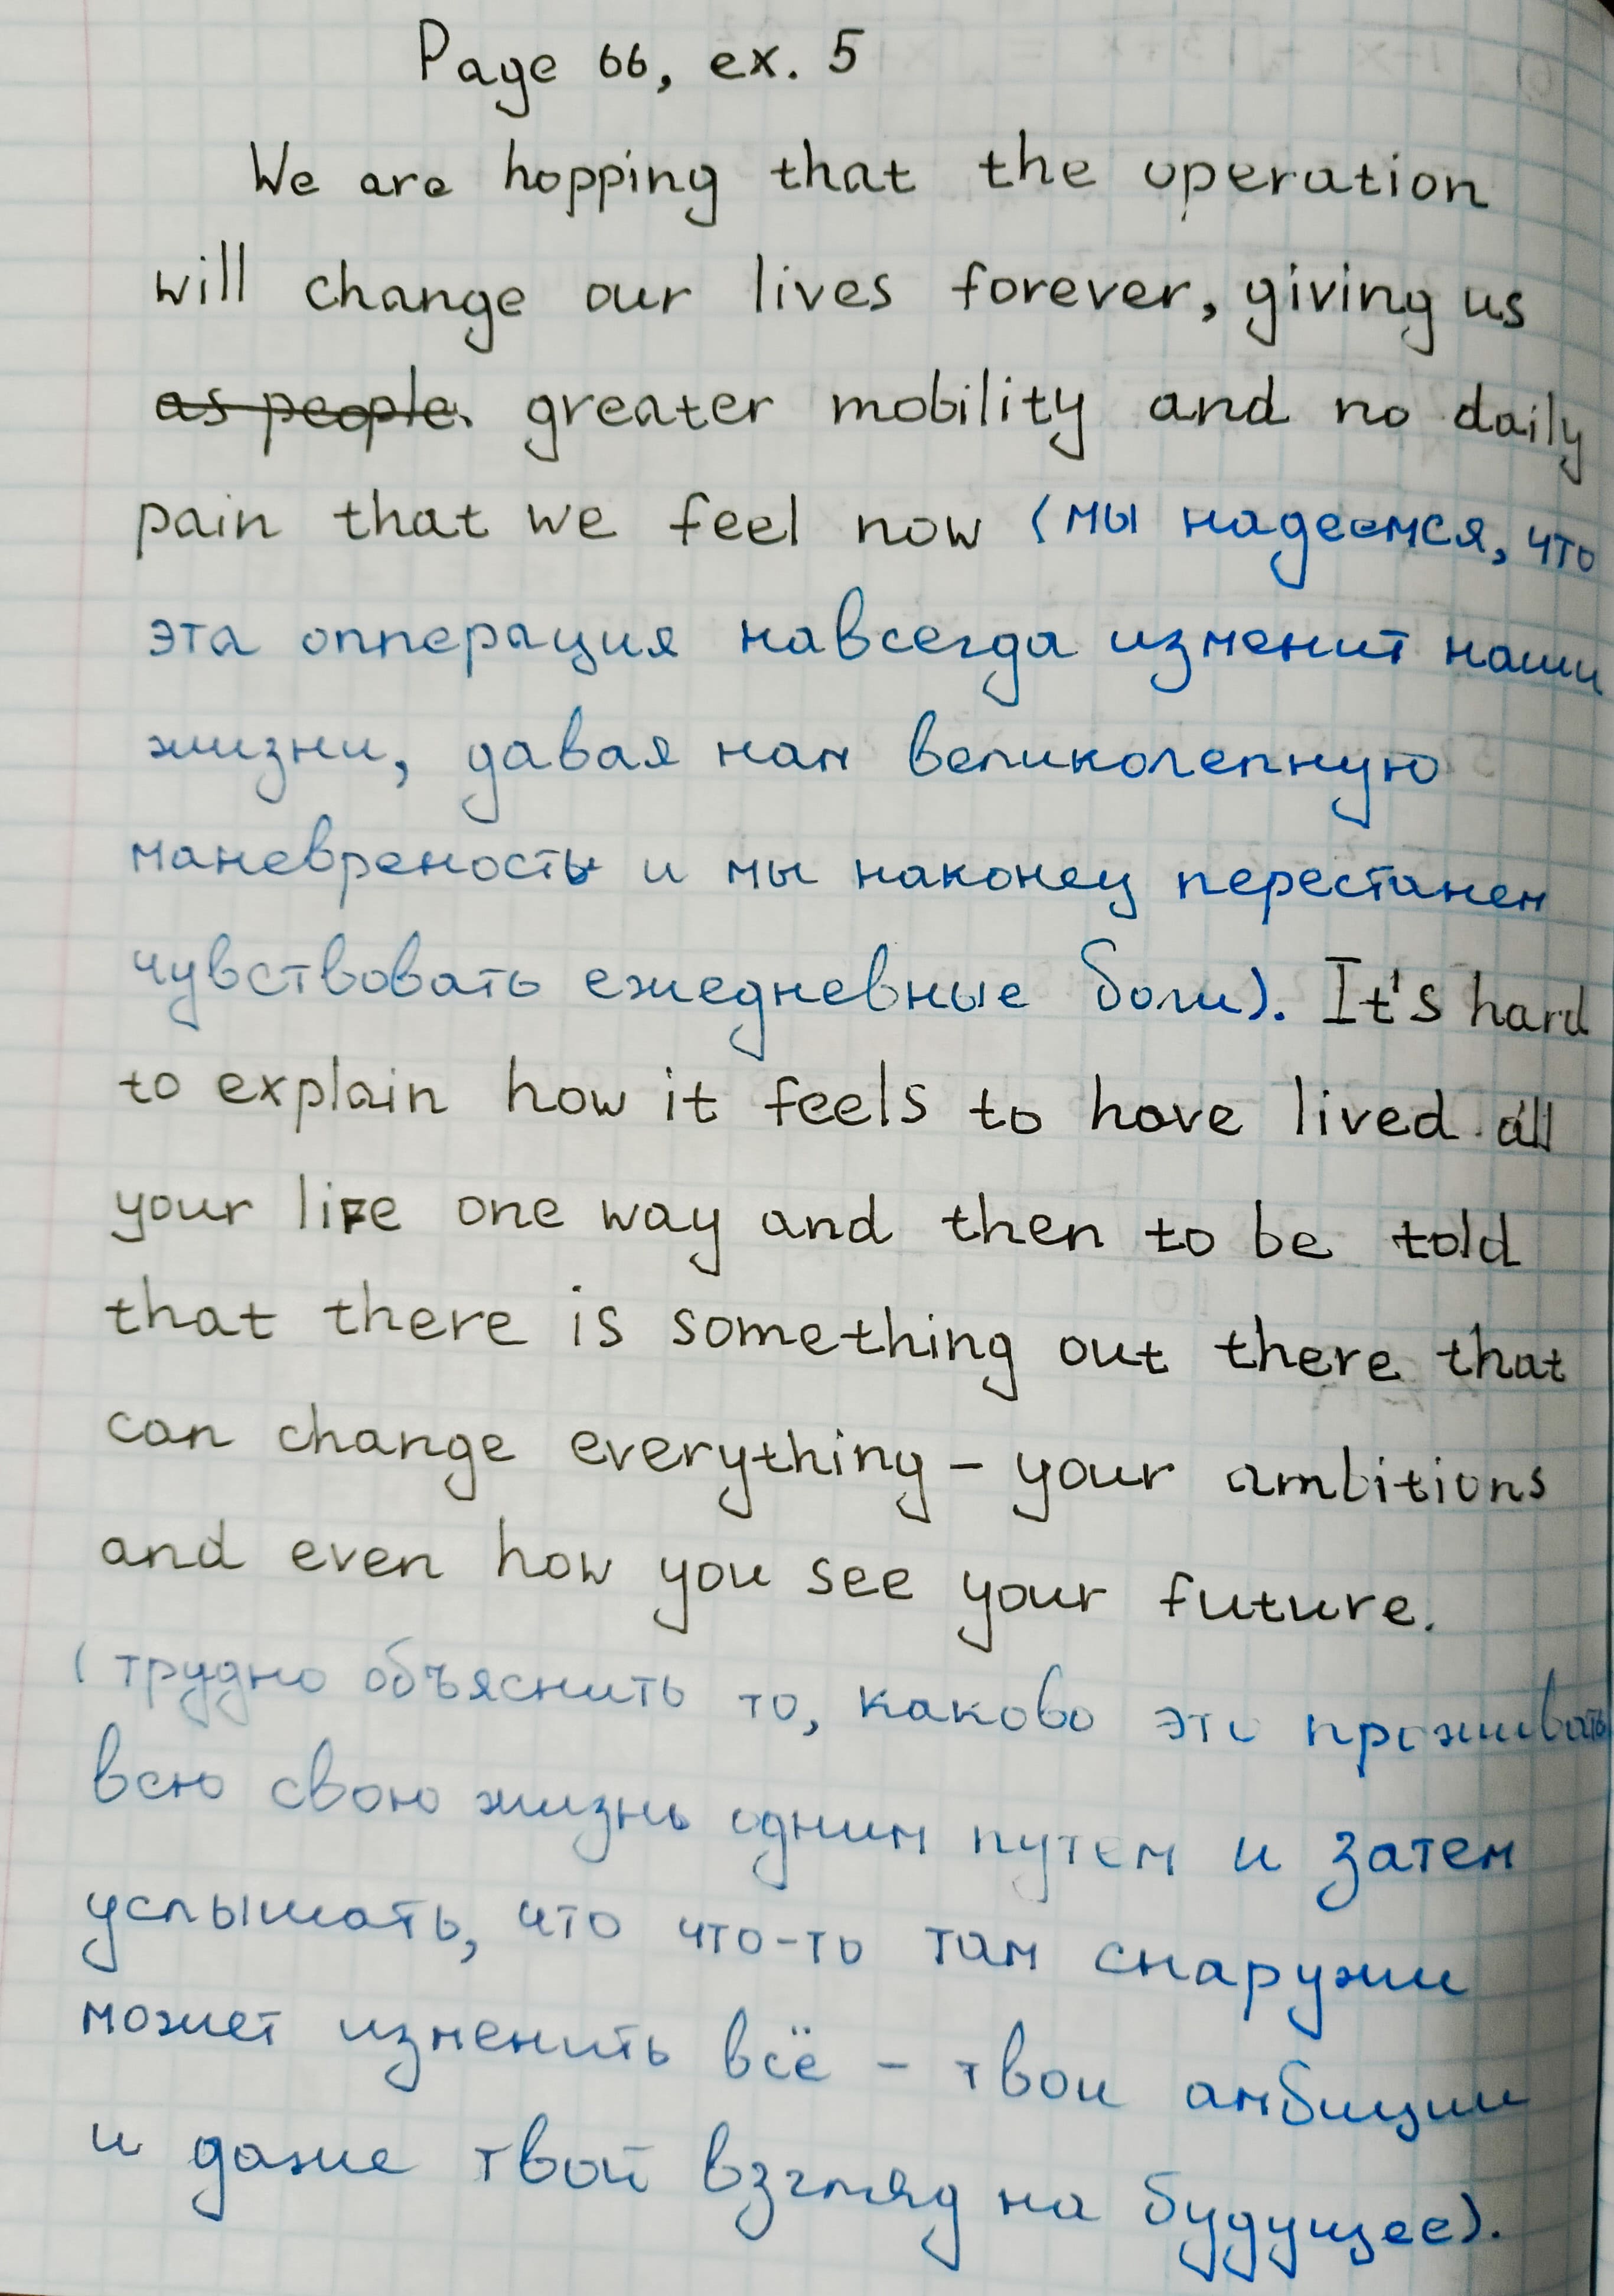 Page 66, ex. 5
We are hopping that the operation
will change our lives forever, giving us
as people. greater mobility and no daily
pain that we feel now (мы надеемся, что
эта опперация навсегда изменит наши
жизни, давая нам великолепную
маневреность и мы наконец перестанем
чувствовать ежедневные боли). It's hard
to explain how it feels to have lived all
your life one way and then to be told
that there is something out there that
can change everything – your ambitions
and even how you see your future.
(трудно объяснить то, каково это проживать
всю свою жизнь одним путем и затем
услышать, что что-то там снаружи
может изменить всё – твои амбиции
и даже твой взгляд на будущее).